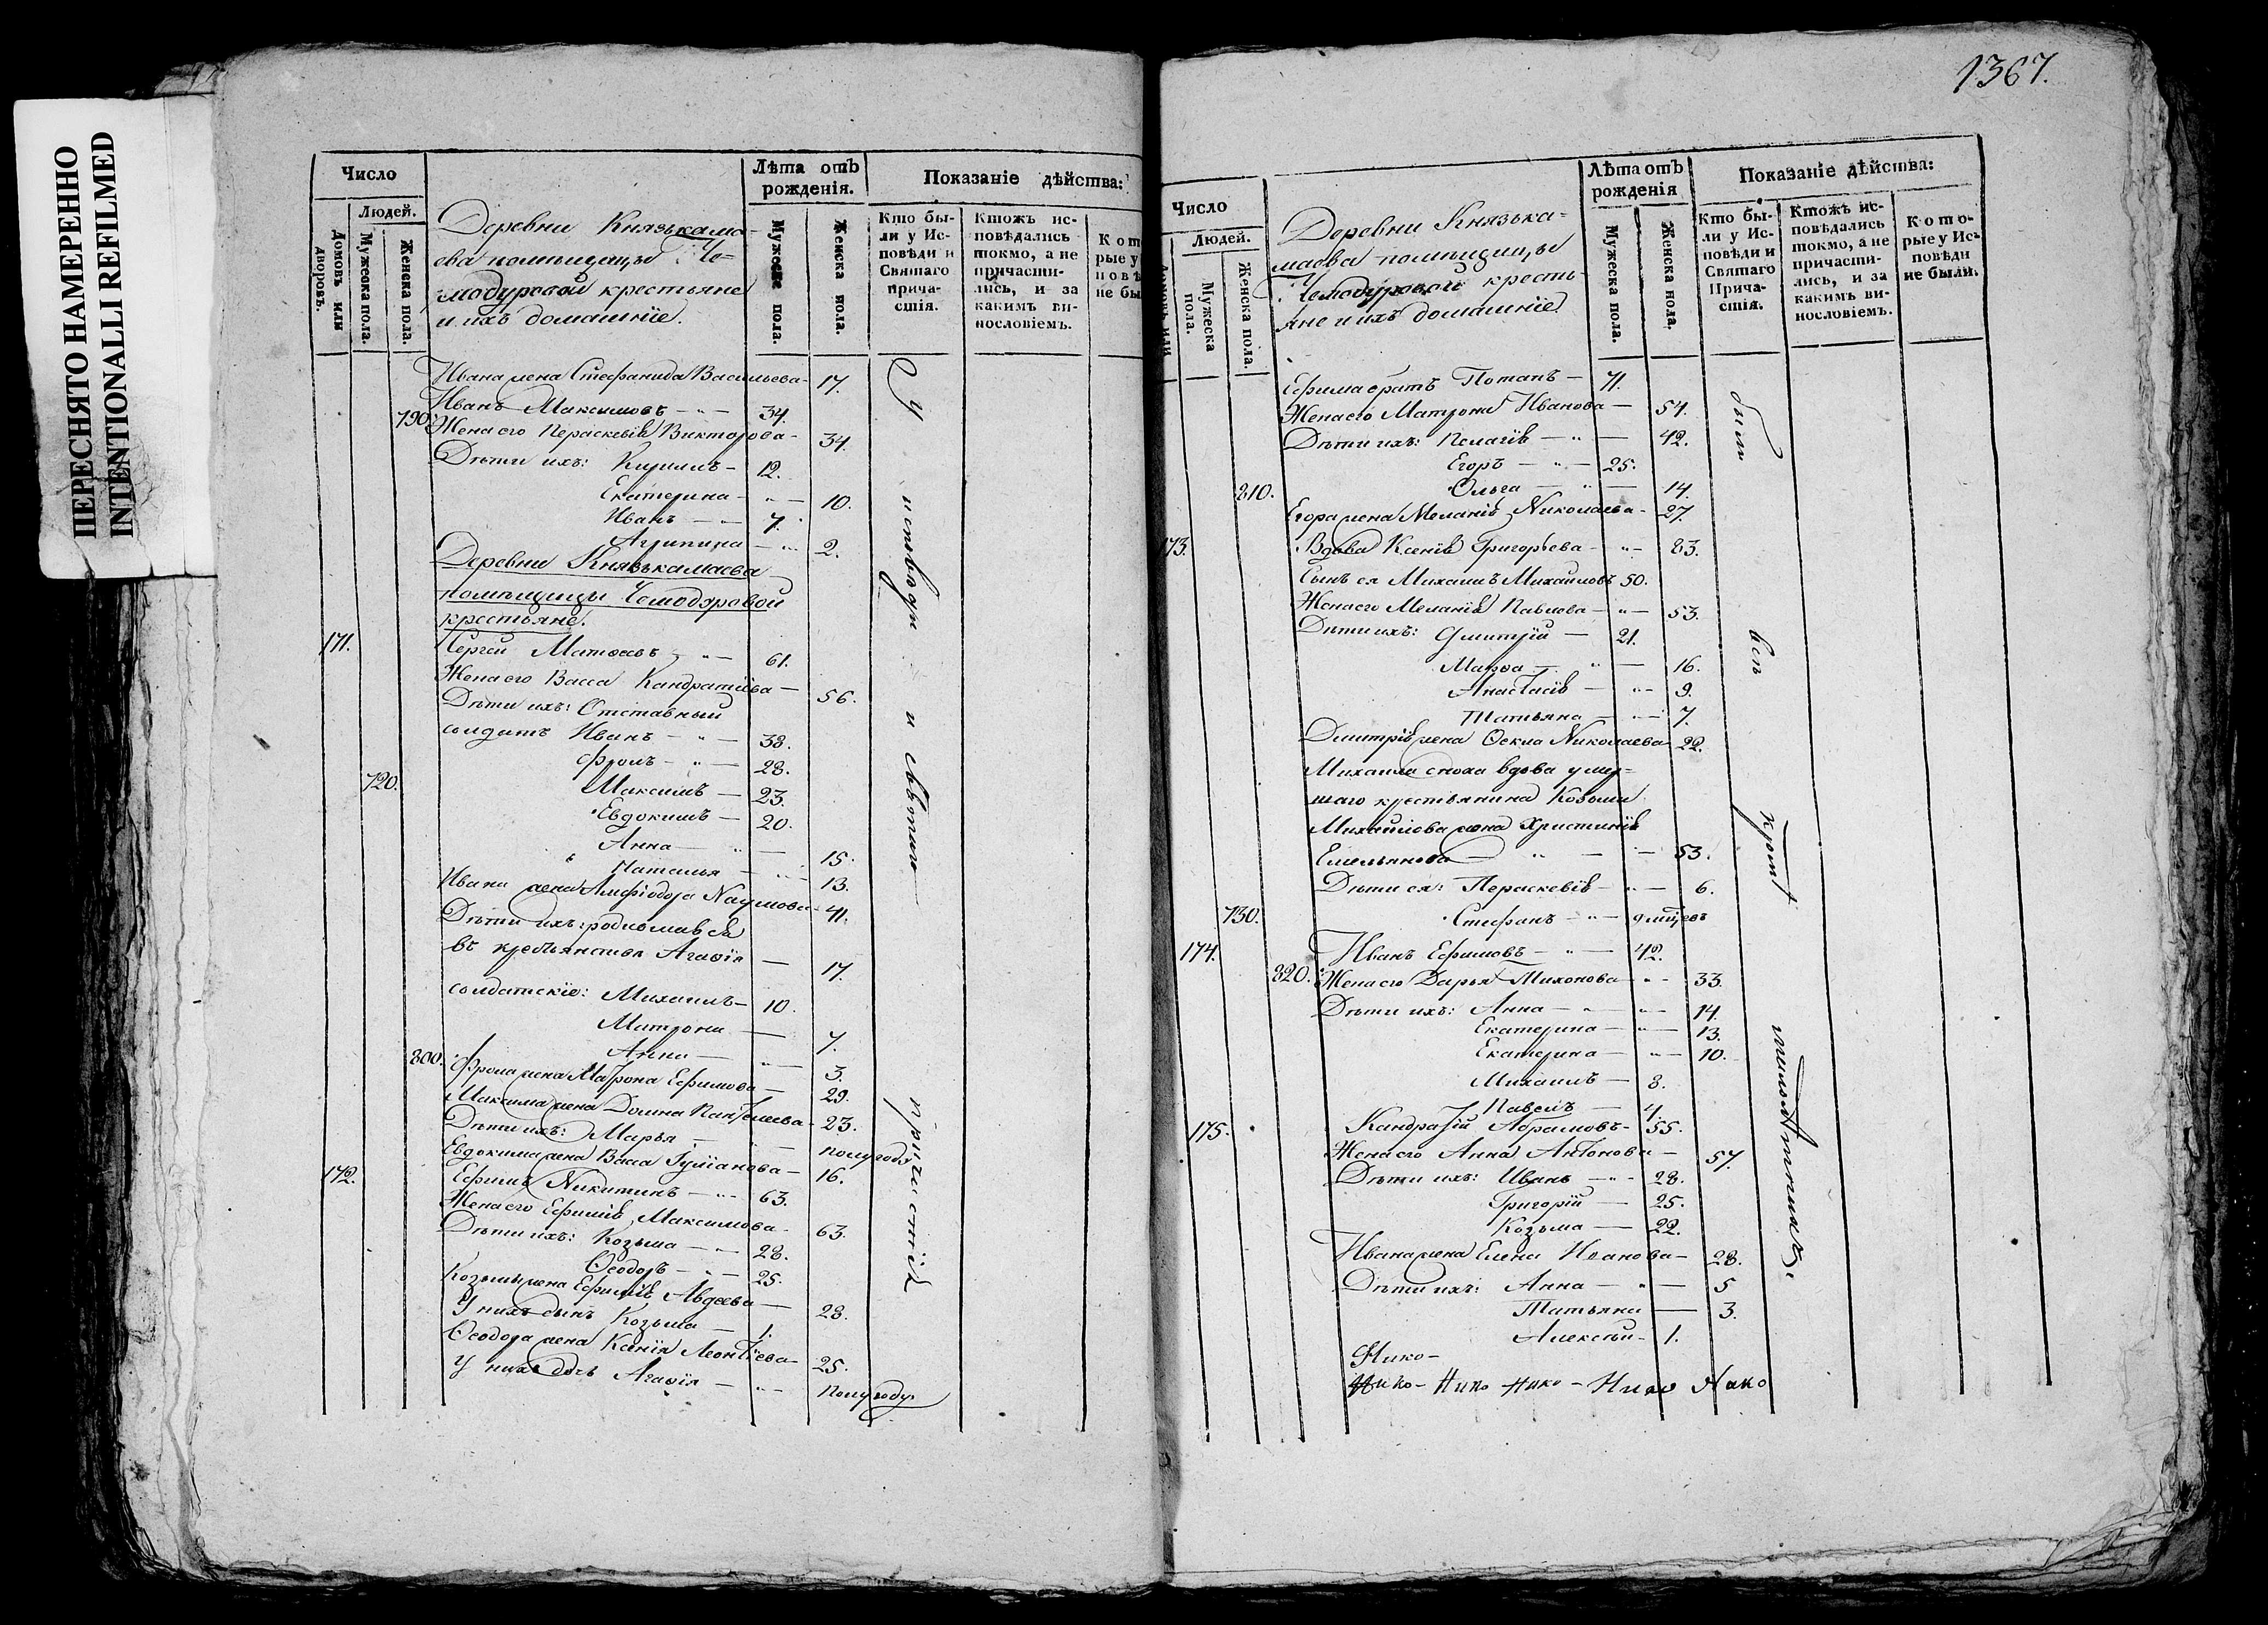 ПЕРЕСНЯТО НАМЕРЕННО
INTENTIONALLI REFILMED
Число
Людей.
Домовъ или дворовъ.
Мужеска пола.
Женска пола.
Деревни Князькама-
ева помѣщицы Че-
модуровой крестьяне
и ихъ домашніе.
Лѣта отъ рожденія.
Мужеска пола.
Женска пола.
Показаніе дѣйства:
Кто бы-
ли у Ис-
повѣди и
Святаго
Прича-
стія.
Ктожъ ис-
повѣдались
токмо, а не
причасти-
лись, и за
какимъ ви-
нословіемъ.
Ивана жена Стефанида Васильева - 17.
Иванъ Максимовъ - 34.
790. Жена его Параскевія Викторова - 34.
Дѣти ихъ: Кирилъ - 12.
Екатерина - 10.
Иванъ - 7.
Агрипина - 2.
Деревни Князькамаева
помѣщицы Чемодуровой
крестьяне.
171. Сергѣй Матвѣевъ - 61.
Жена его Васса Кандратіева - 56.
Дѣти ихъ: Отставный
солдатъ Иванъ - 38.
Фролъ - 28.
720. Максимъ - 23.
Евдокимъ - 20.
Анна - 15.
Наталья - 13.
Ивана жена Наумова - 41.
Дѣти ихъ:
въ крестьянствѣ Агаѳія - 17.
солдатскіе: Михаилъ - 10.
Матрона - 7.
Анна - 3.
800. Фрола жена Матрона Ефимова - 29.
Максима жена Домна Пантелеева - 23.
Дѣти ихъ: Марья - полугоду
Евдокима жена Васса - 16.
172. Ефимъ Никитинъ - 63.
Жена его Ефимія Максимова - 63.
Дѣти ихъ: Козьма - 28.
Ѳеодоръ - 25.
Козьмы жена Ефимія Авдеева - 28.
У нихъ сынъ Козьма - 1.
Ѳеодора жена Ксенія Леонтіева - 25.
У нихъ дочь Агаѳія - полугоду
У исповѣди и святаго причастія
1367.
Число
Людей.
Мужеска пола.
Женска пола.
Деревни Князька-
маева помѣщицы
Чемодуровой кресть-
яне и ихъ домашніе
Лѣта отъ рожденія
Мужеска пола.
Женска пола.
Показаніе дѣйства:
Кто бы-
ли у Ис-
повѣди и
Святаго
Прича-
стія.
Ктожъ ис-
повѣдались
токмо, а не
причасти-
лись, и за
какимъ ви-
нословіемъ.
Кото-
рые у Ис-
повѣди
не были.
Ефима братъ Потапъ - 71.
Жена его Матрона Иванова - 54.
Дѣти ихъ: Пелагія - 42.
Егоръ - 25.
810. Ольга - 14.
Егора жена Меланія Николаева - 27.
173. Вдова Ксенія Григорьева - 83.
Сынъ ея Михаилъ Михайловъ 50.
Жена его Меланія Павлова - 53.
Дѣти ихъ: Дмитрій - 21.
Марѳа - 16.
Анастасія - 9.
Татьяна - 7.
Дмитрія жена Ѳекла Николаева 22.
Михаила сноха вдова умер-
шаго крестьянина Козьмы
Михайлова жена Христинія
Емельянова - 53.
Дѣти ея: Параскевія - 6.
730. Стефанъ -
174. Иванъ Ефимовъ - 42.
820. Жена его Дарья - 33.
Дѣти ихъ: Анна - 14.
Екатерина - 13.
Екатерина - 10.
Михаилъ - 8.
Павелъ - 4.
175. Кандратій Абрамовъ - 55.
Жена его Анна Антонова - 57.
Дѣти ихъ: Иванъ - 28.
Григорій - 25.
Козьма - 22.
Ивана жена Елена Иванова - 28.
Дѣти ихъ: Анна - 5
Татьяна - 3.
Алексѣй - 1.
были всѣ кромѣ